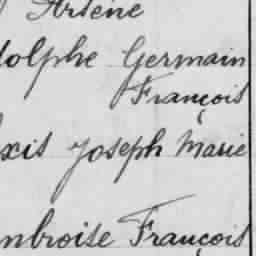 Arlene
dolphe Germain
François
xis Joseph Marie
mbroise François